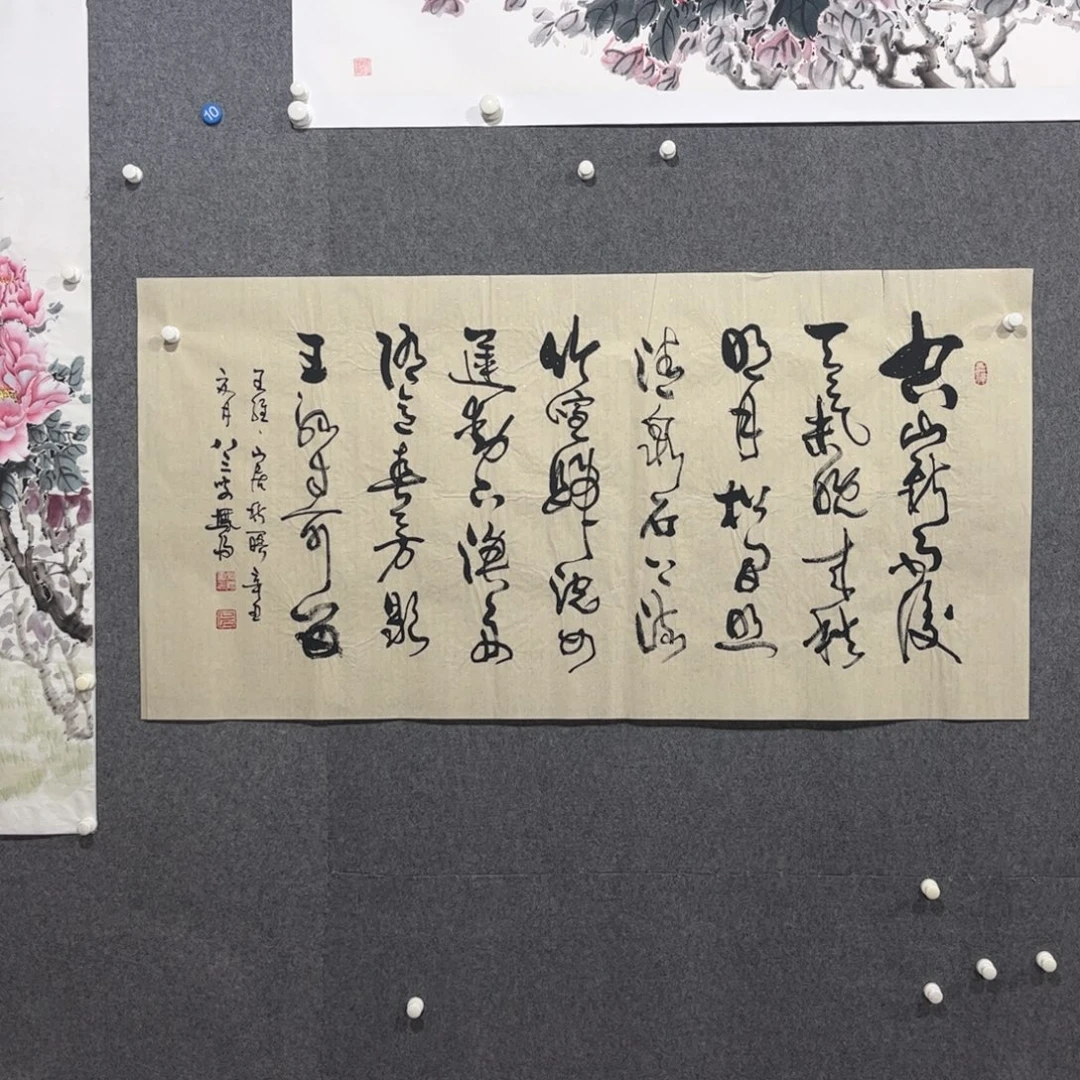 空山新雨後
天氣晚来秋
明月松间照
清泉石上流
竹喧歸浣女
莲動下漁舟
随意春芳歇
王孙自可留
王维山居秋暝 辛丑
八三叟
10